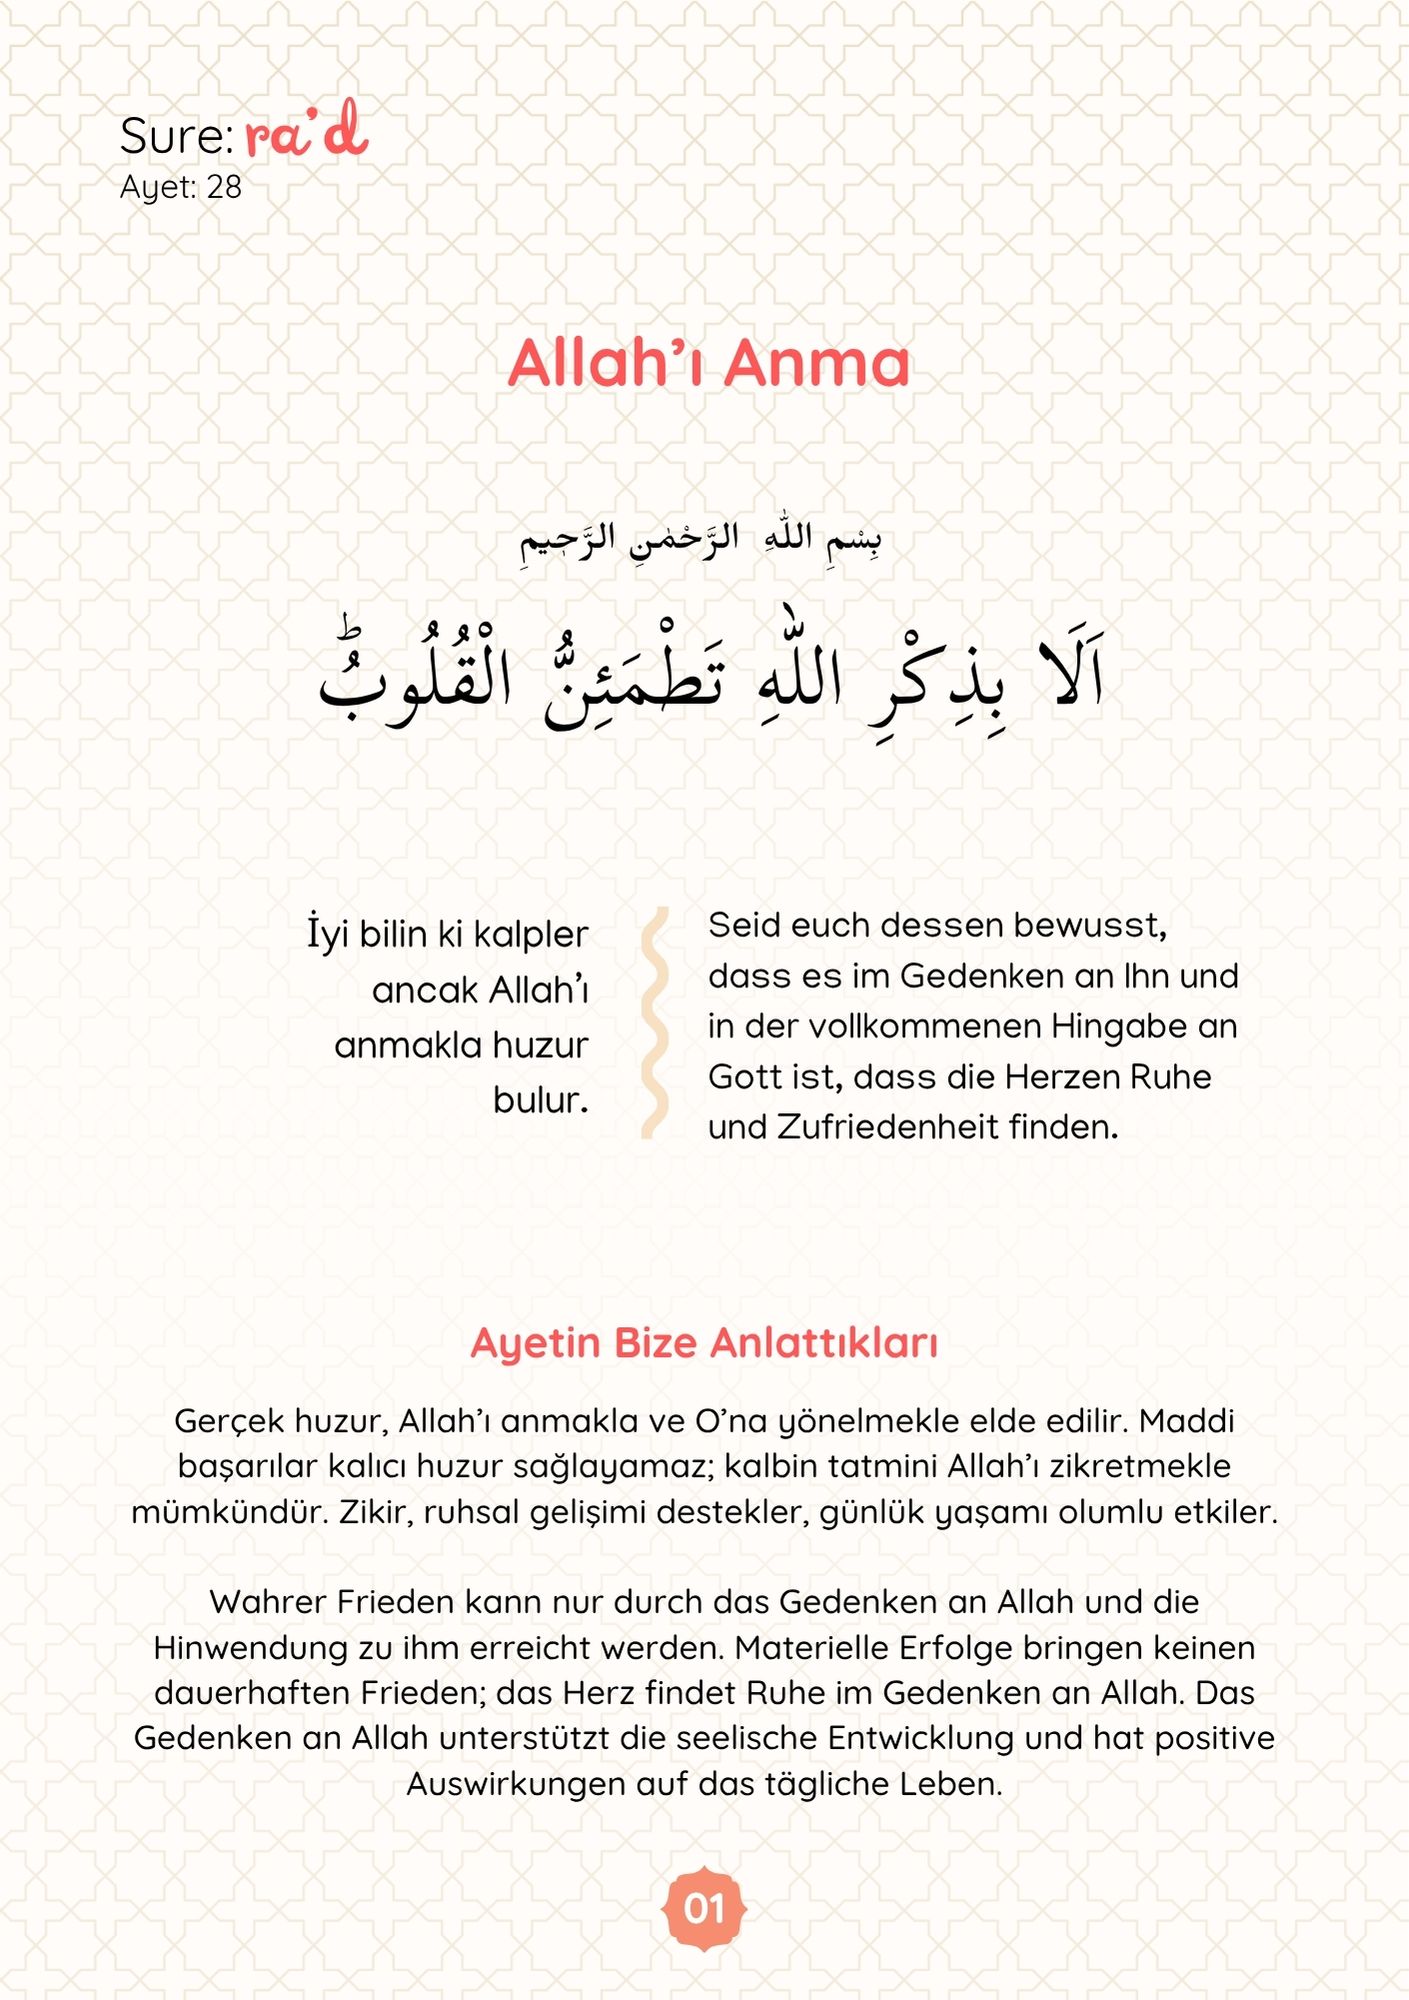 Sure: ra'd
Ayet: 28
Allah'ı Anma
بِسْمِ اللّٰهِ الرَّحْمٰنِ الرَّح۪يمِ
اَلَا بِذِكْرِ اللّٰهِ تَطْمَئِنُّ الْقُلُوبُۜ
İyi bilin ki kalpler
ancak Allah'ı
anmakla huzur
bulur.
Seid euch dessen bewusst,
dass es im Gedenken an Ihn und
in der vollkommenen Hingabe an
Gott ist, dass die Herzen Ruhe
und Zufriedenheit finden.
Ayetin Bize Anlattıkları
Gerçek huzur, Allah'ı anmakla ve O'na yönelmekle elde edilir. Maddi
başarılar kalıcı huzur sağlayamaz; kalbin tatmini Allah'ı zikretmekle
mümkündür. Zikir, ruhsal gelişimi destekler, günlük yaşamı olumlu etkiler.
Wahrer Frieden kann nur durch das Gedenken an Allah und die
Hinwendung zu ihm erreicht werden. Materielle Erfolge bringen keinen
dauerhaften Frieden; das Herz findet Ruhe im Gedenken an Allah. Das
Gedenken an Allah unterstützt die seelische Entwicklung und hat positive
Auswirkungen auf das tägliche Leben.
01